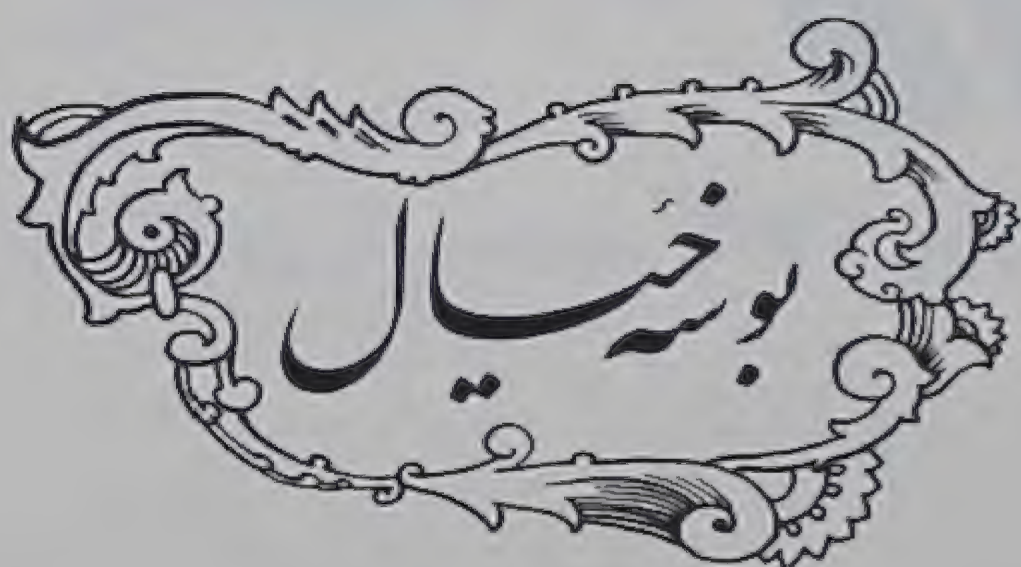 بوسه خیال